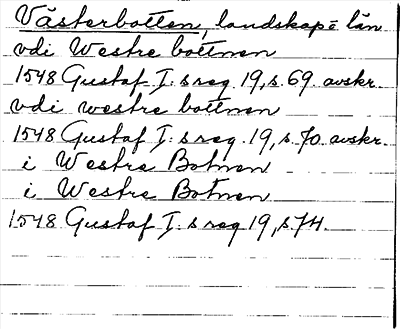 Västerbotten, landskap o län
vdi Westre bottnen
1548 Gustaf I:s reg. 19, s. 69. avskr.
vdi westre bottnen
1548 Gustaf I:s reg. 19, s. 70. avskr.
i Westre Botnen
i Westre Botnen
1548 Gustaf I:s reg 19, s. 74.